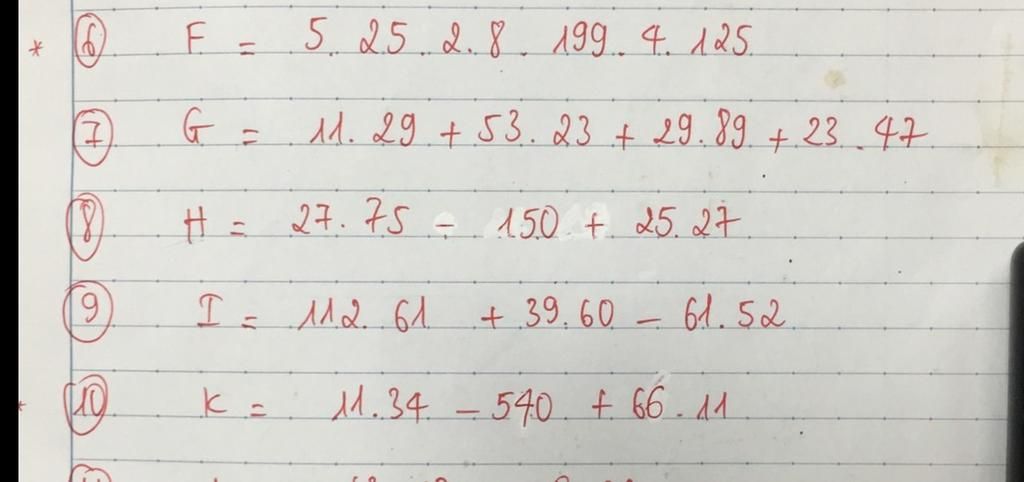 * 6 F = 5. 25. 2. 8. 199. 4. 125
7 G = 11. 29 + 53. 23 + 29. 89 + 23. 47
8 H = 27. 75 - 150 + 25. 27
9 I = 112. 61 + 39. 60 - 61. 52
* 10 K = 11. 34 - 540 + 66. 11